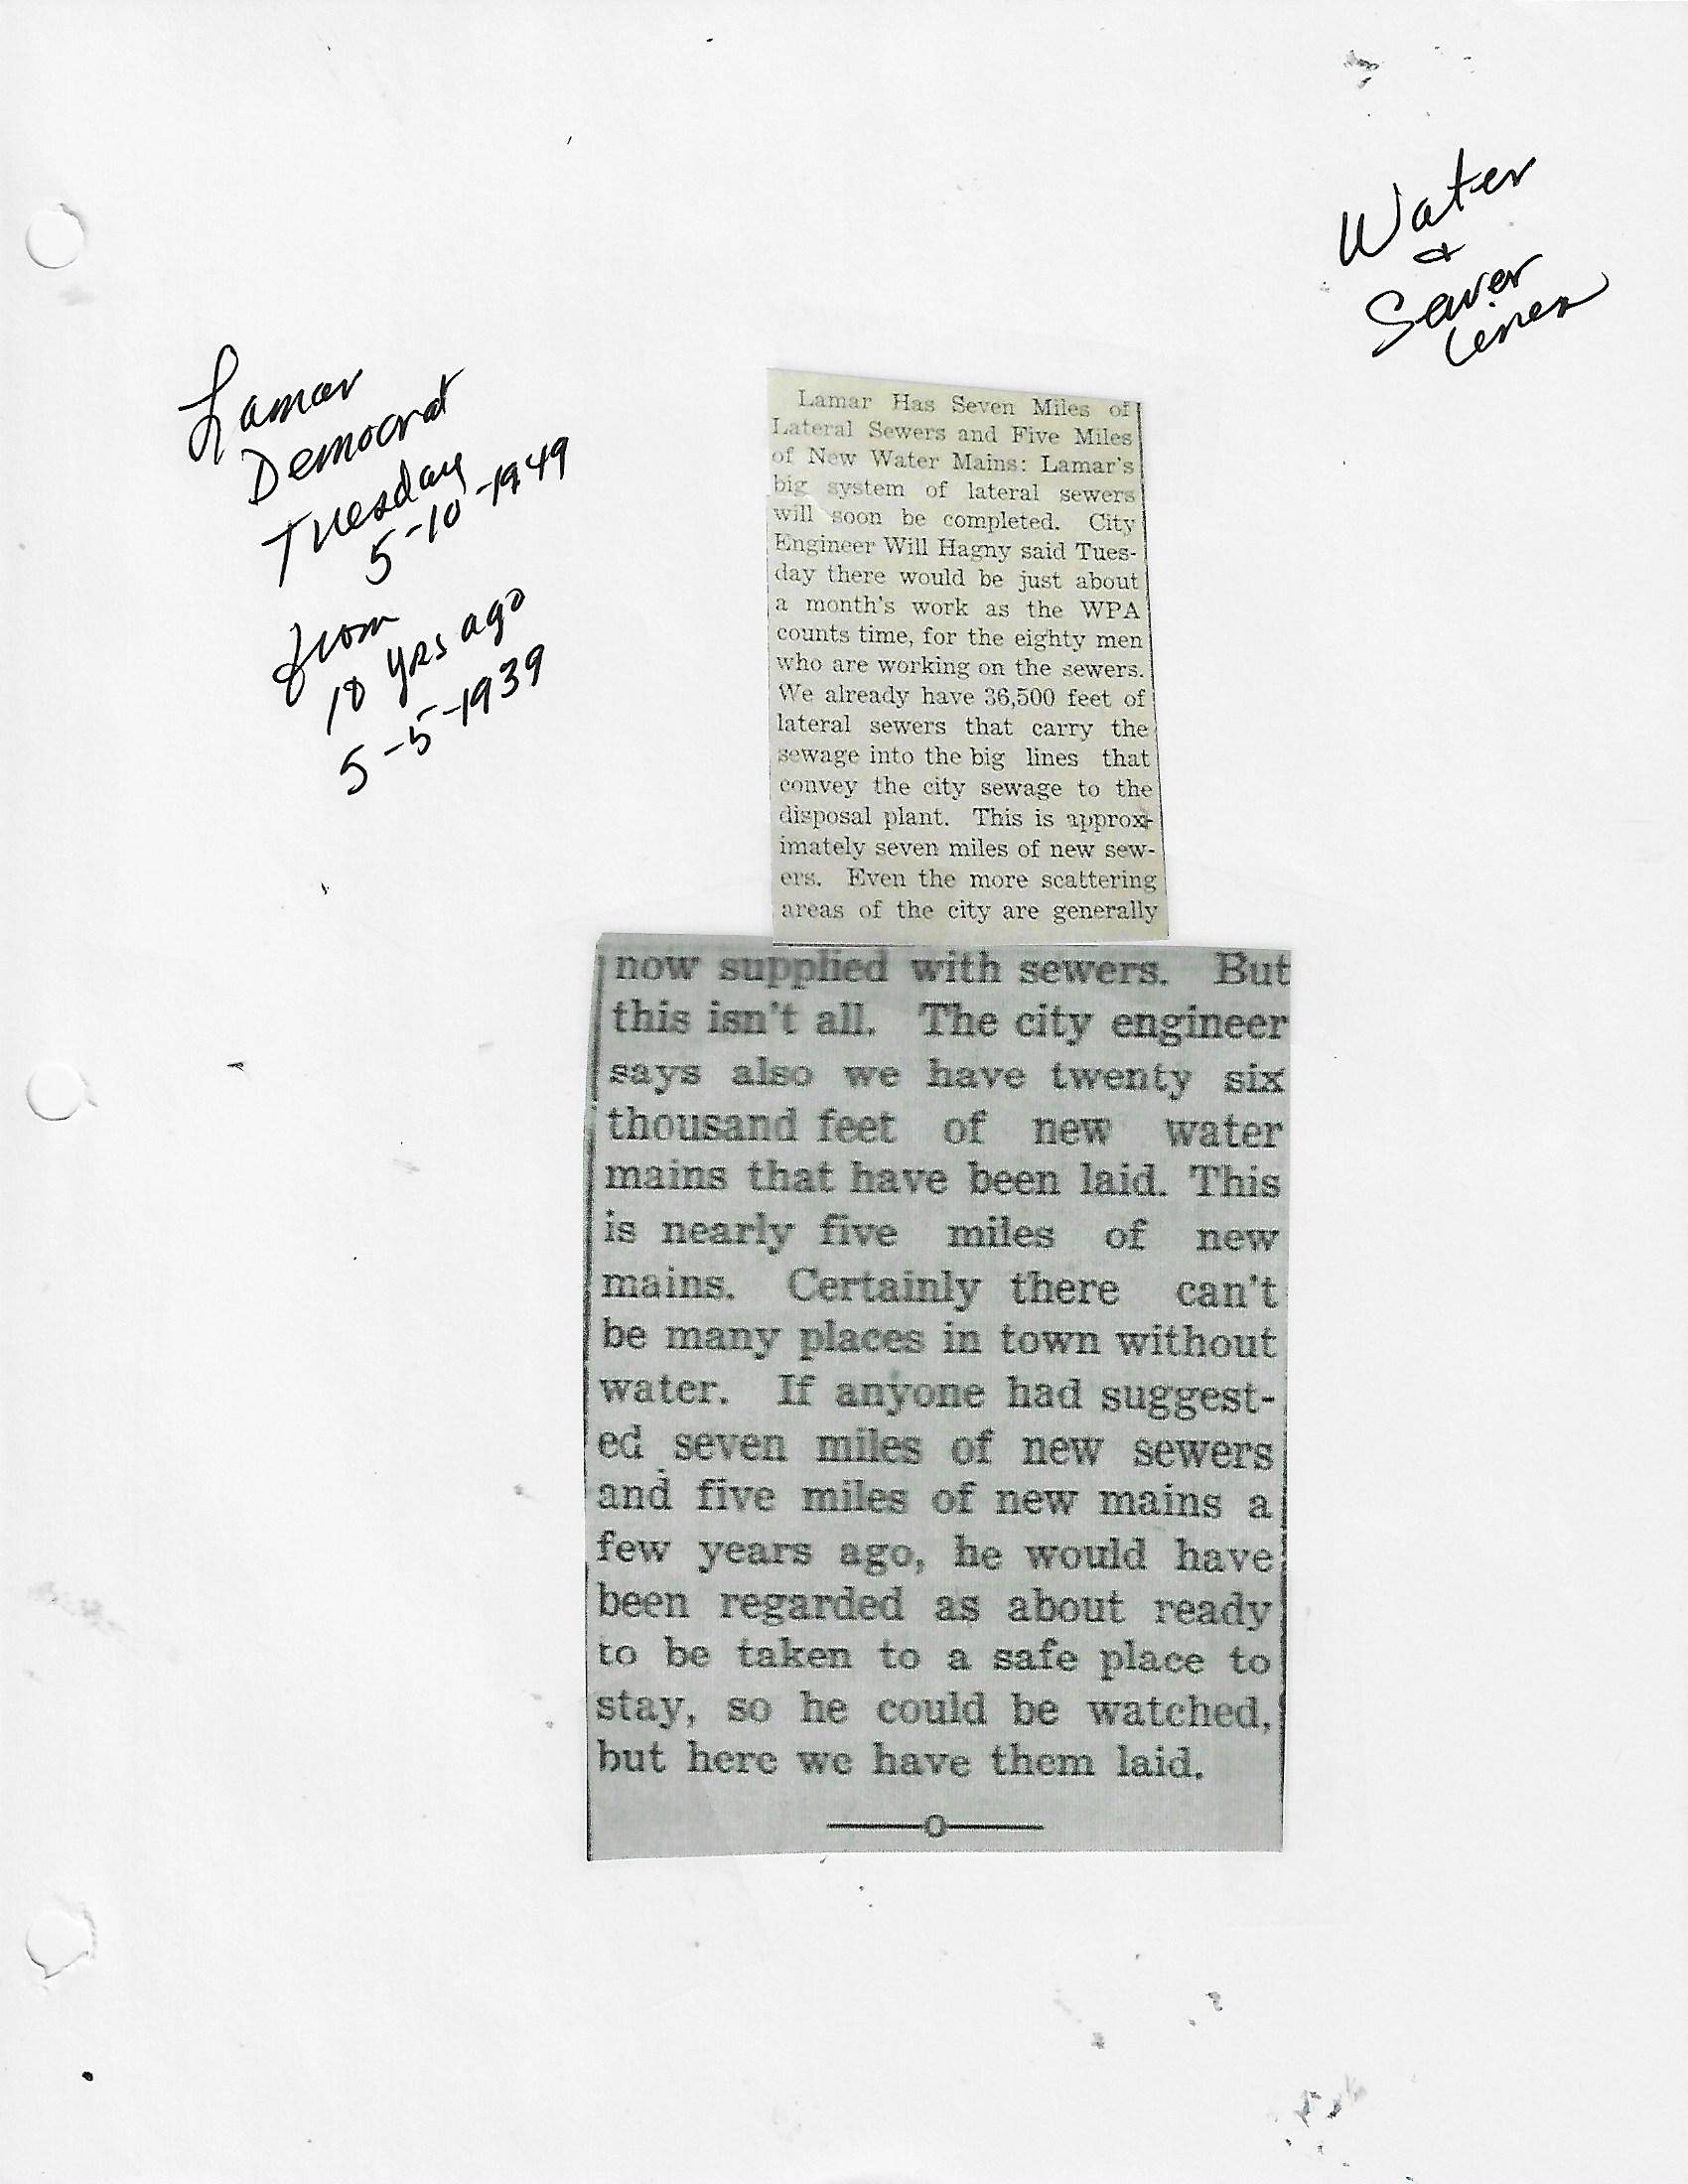 Water
&
Sewer
Lines
Lamar
Democrat
Tuesday
5-10-1949
from
10 yrs ago
5-5-1939
Lamar Has Seven Miles of
Lateral Sewers and Five Miles
of New Water Mains: Lamar's
big system of lateral sewers
will soon be completed. City
Engineer Will Hagny said Tues-
day there would be just about
a month's work as the WPA
counts time, for the eighty men
who are working on the sewers.
We already have 36,500 feet of
lateral sewers that carry the
sewage into the big lines that
convey the city sewage to the
disposal plant. This is approx-
imately seven miles of new sew-
ers. Even the more scattering
areas of the city are generally
now supplied with sewers. But
this isn't all. The city engineer
says also we have twenty six
thousand feet of new water
mains that have been laid. This
is nearly five miles of new
mains. Certainly there can't
be many places in town without
water. If anyone had suggest-
ed seven miles of new sewers
and five miles of new mains a
few years ago, he would have
been regarded as about ready
to be taken to a safe place to
stay, so he could be watched,
but here we have them laid.